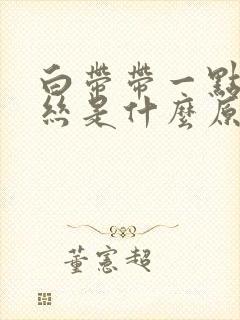 白帶帶一點
絲是什麼原
董憲超